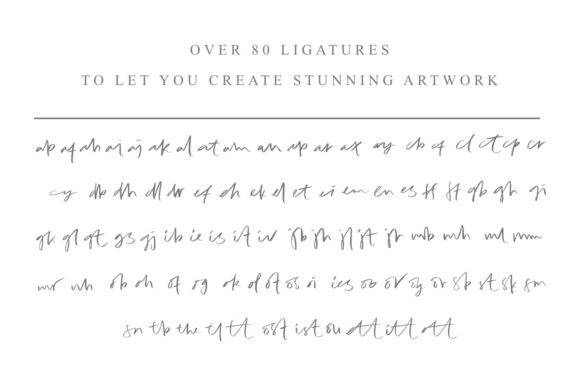 OVER 80 LIGATURES
TO LET YOU CREATE STUNNING ARTWORK
ab af ah ai aj ak al at am an ap ar ax ay cb cf cl ct cp cr
cy db dh dl dr ef eh ek el et ei em en es ff ft gb gh gi
gk gl gt gs gj ib ie is it iv jb jh jl jt jr mb mh ml mm
mr nh ob oh of og ok ol ot os oi ies oo or oy or sb st sk sm
sn tb the tf tt ost ist ou att itt ott